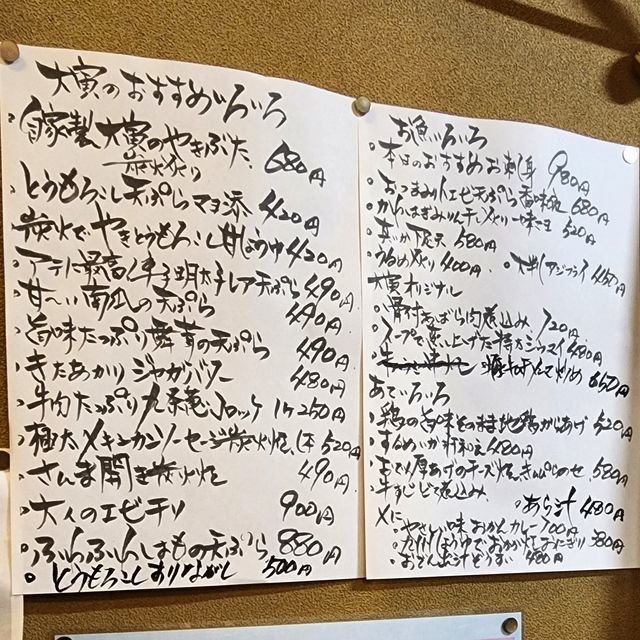 大寅のおすすめいろいろ
自家製大寅のやきぶた 680円
炭火炙り
とうもろこし天ぷらマヨ添 420円
炭火でやきとうもろこし甘じょうゆ 420円
アテに最高!辛子明太子レア天ぷら 490円
甘〜い南瓜の天ぷら 490円
旨味たっぷり舞茸の天ぷら 490円
きたあかりジャガバター 480円
牛肉たっぷり九条葱コロッケ 1ケ250円
極太メキシカンソーセージ炭火焼 1本520円
さんま開き炭火焼 490円
大人のエビチリ 900円
ふわふわはもの天ぷら 880円
とうもろこしすりながし 500円
お魚いろいろ
本日のおすすめお刺身 980円
おつまみ小エビ天ぷら香味塩 680円
かわはぎみりん干し炙り一味マヨ 520円
真いか下足天 580円
うるめ炙り 400円 大判アジフライ 450円
大寅オリジナル
骨付きばら肉煮込み 720円
スープで炊い上げた特大シウマイ 480円
炒め 650円
あていろいろ
鶏の旨味そのまま地鶏からあげ 520円
するめいか 480円
厚あげのチーズ焼、きんぴらのせ 580円
牛すじとど煮込み
あら汁 480円
〆に
やさしい味おかんカレー 700円
九州しょうゆでおかか焼おにぎり 380円
おでん出汁ぞうすい 480円